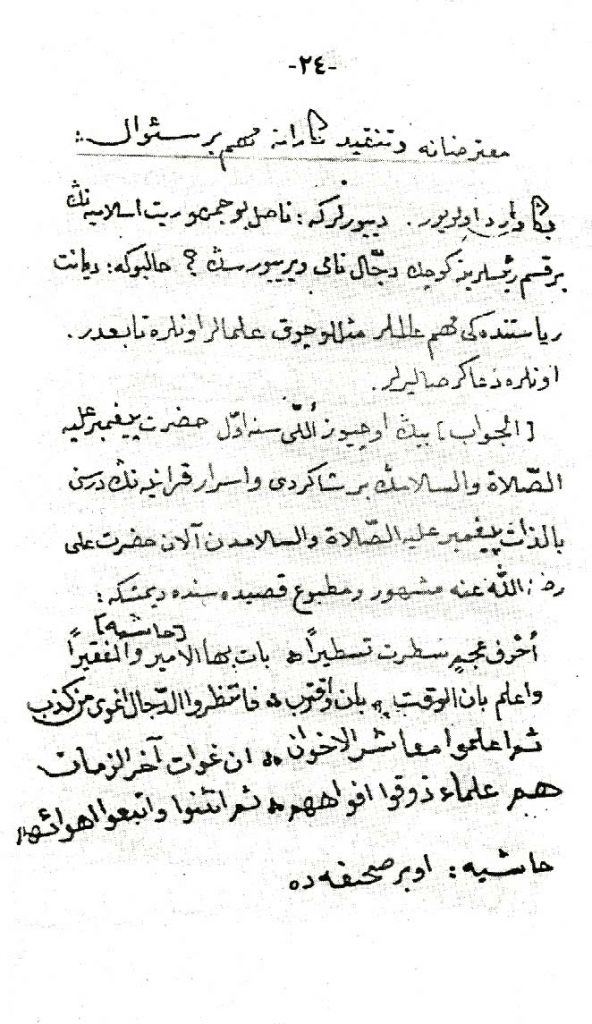 -٢٤-
معترضانه و تنقيدكارانه مهم بر سئوال :
بڭا وارد اولويور. دييورلركه : ناصل بو جمهوريت اسلاميه نڭ
بر قسم رئيسلرينه كوچك دجّال نامى ويرييورسڭ؟ حالبوكه: ديانت
رياستنده كى مهم عالملر مثللو چوق علمالر اونلره تابعدر.
اونلره دعاكر صاليرلر.
[الجواب] بيڭ اوچيوز اُللّى سنه اوّل حضرت پيغمبر عليه
الصّلاة والسلامڭ بر شاكردى و اسرار قرآنيه نڭ درسنى
بالذات پيغمبر عليه الصّلاة والسلامدن آلان حضرت على
رضى الله عنه مشهور و مطبوع قصيده سنده ديمشكه :
[حاشيه]
اُحْرف عجمٍ سطرت تسطيراً ٭ بات بها الامير والفقيراً
واعلم بان الوقت بان واقترب ٭ فانتظروا الدّجال اغوى من كذب
ثم اعلموا معاشر الاخوان ٭ ان غوات آخر الزمان
هم علماء ذوقوا افواههم ٭ ثم انثنوا واتبعوا اهوائهم
حاشيه : اوبر صحيفه ده